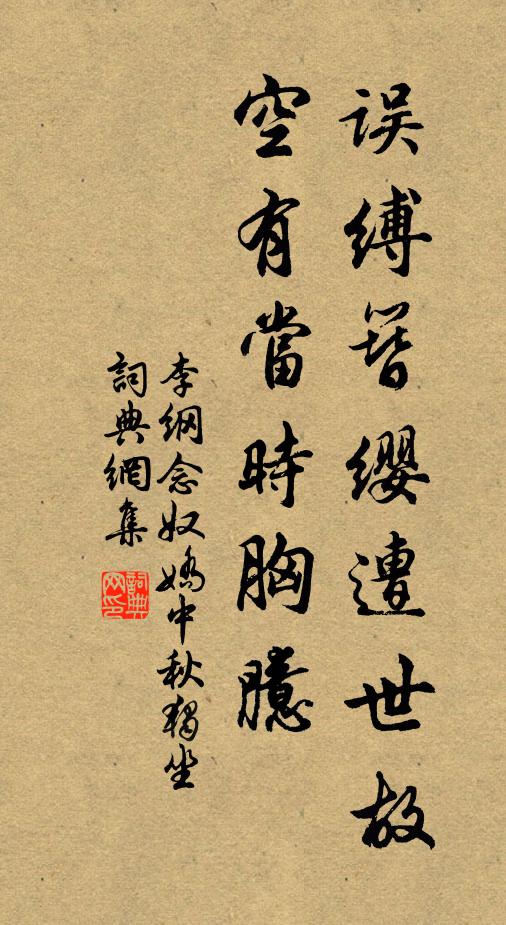 误缚簪缨遭世故
空有當時胸臆
李纲念奴娇中秋独坐
詞典網集
詞典网印